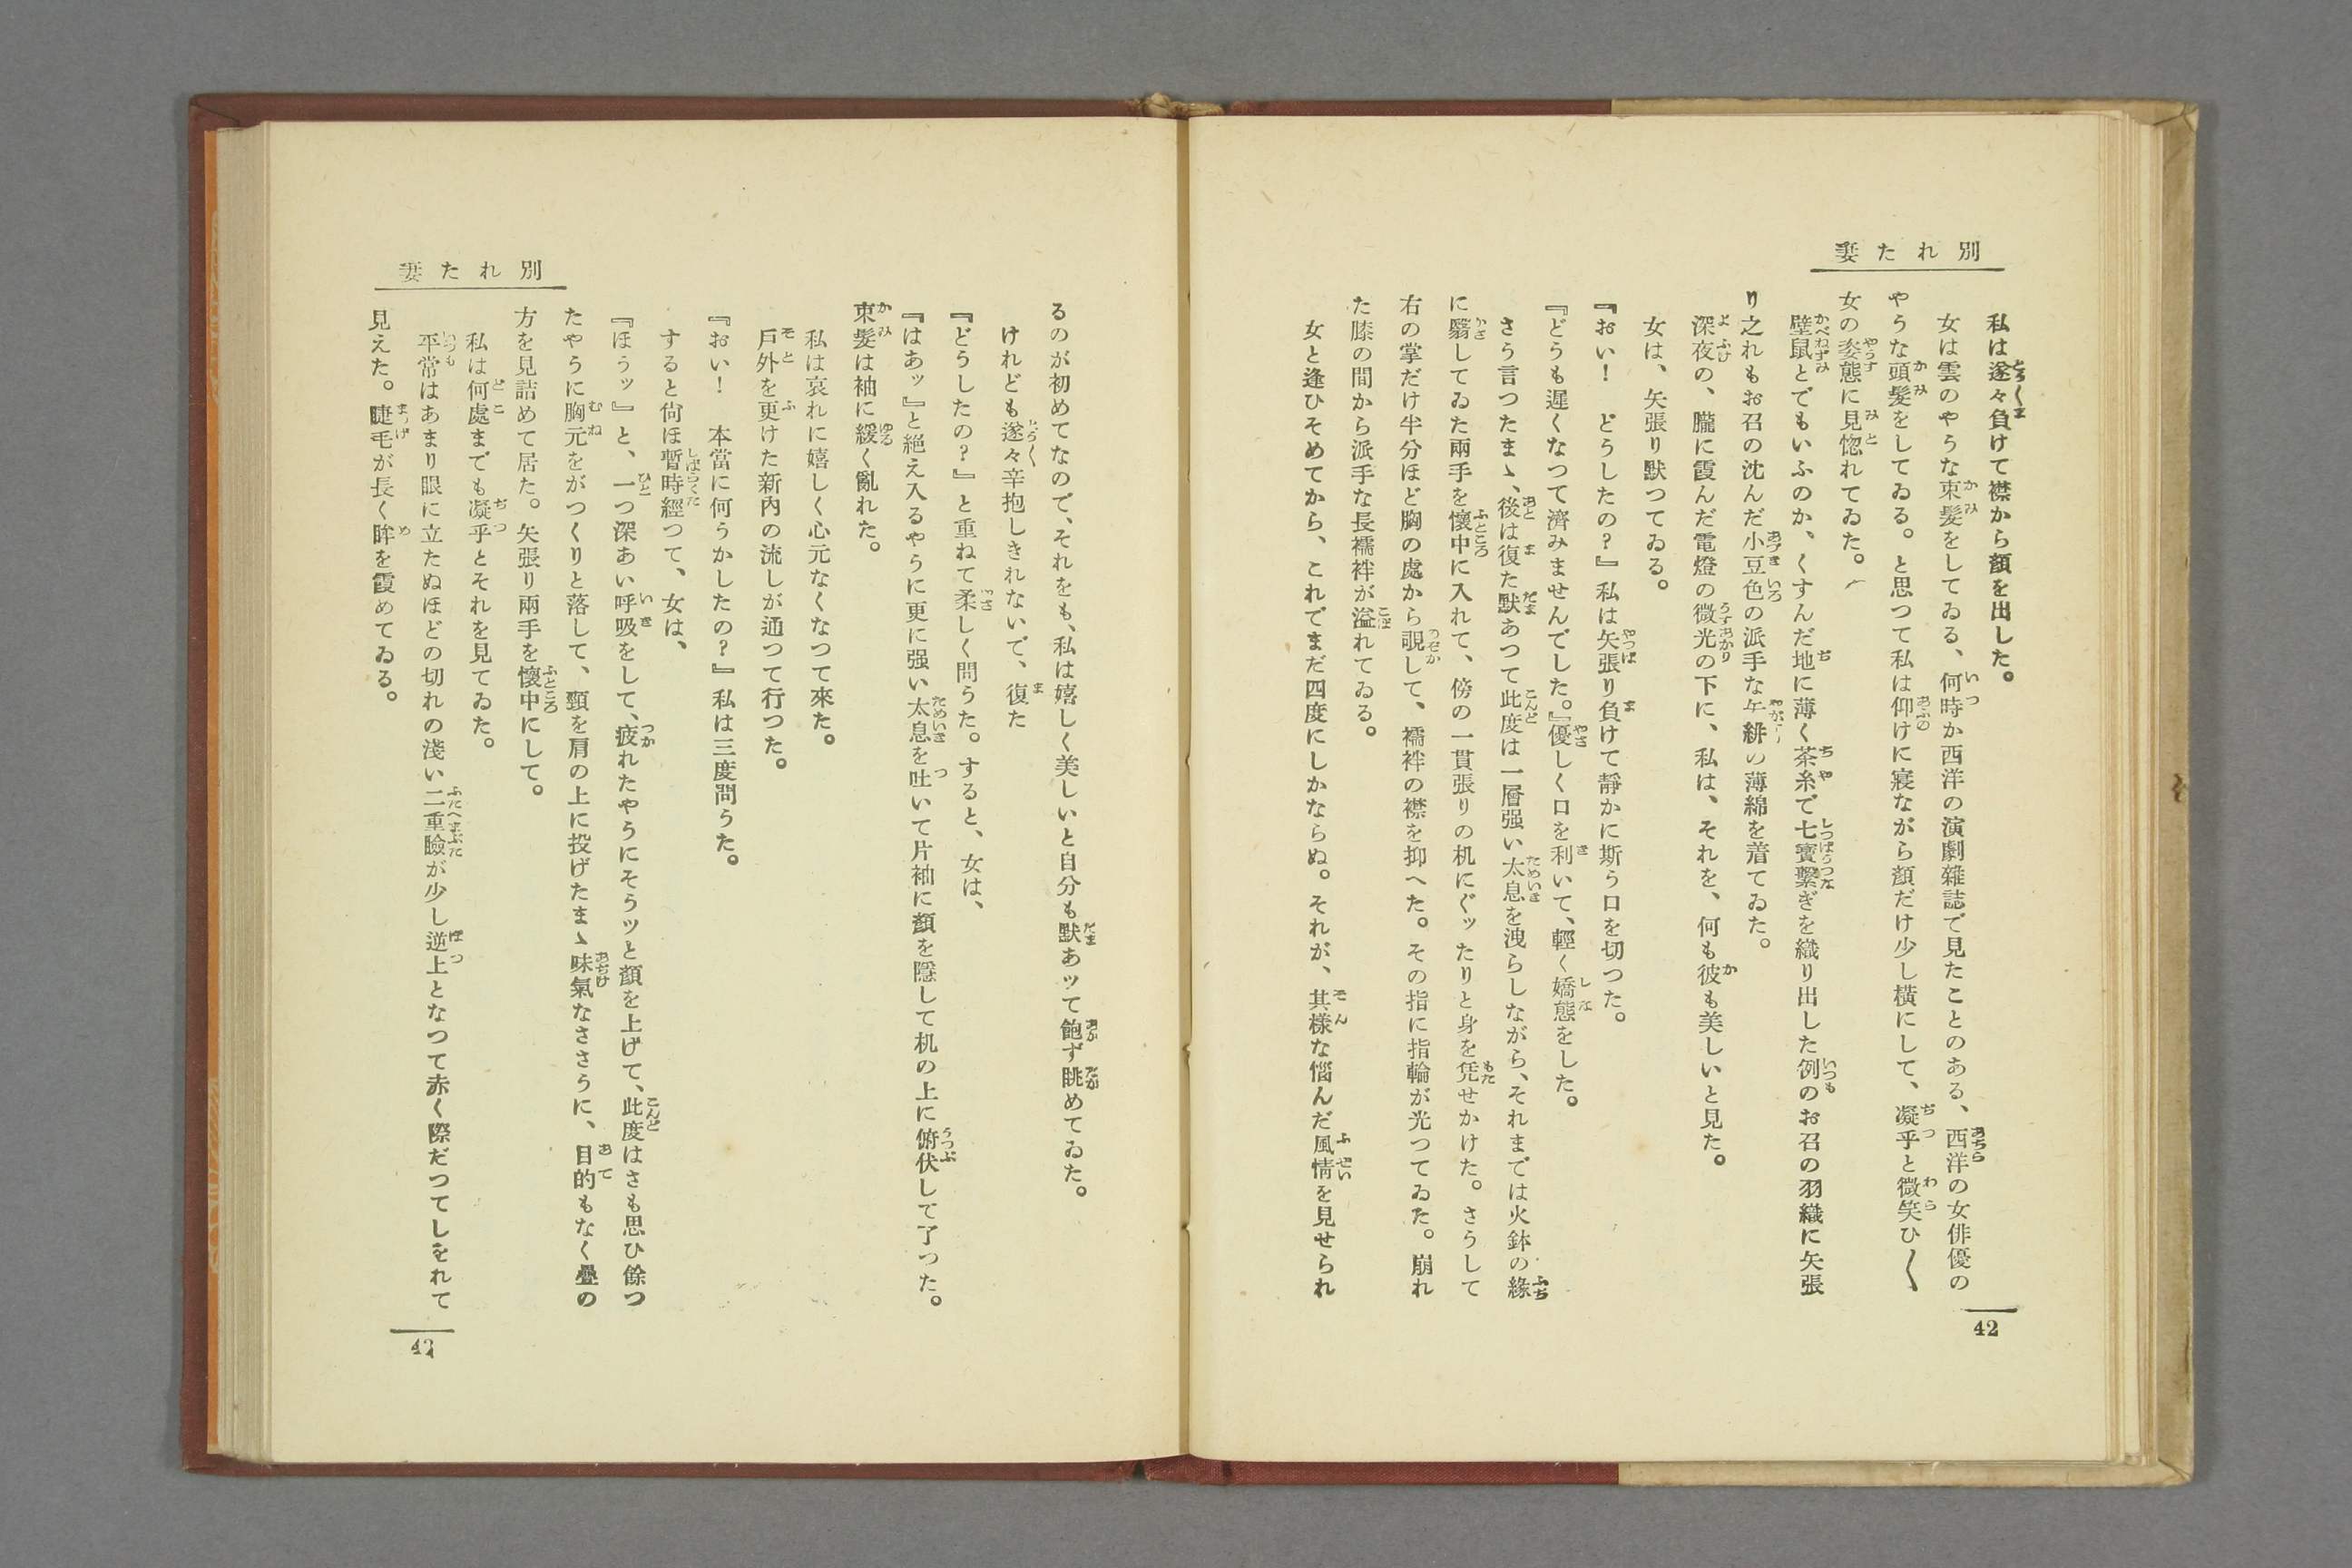 別れた妻
私は遂々負けて襟から顏を出した。
女は雲のやうな束髮をしてゐる、何時か西洋の演劇雜誌で見たことのある、西洋の女俳優の
やうな頭髮をしてゐる。と思つて私は仰けに寢ながら顏だけ少し橫にして、凝乎と微笑ひ〱
女の姿態に見惚れてゐた。
壁鼠とでもいふのか、くすんだ地に薄く茶糸で七寶繫ぎを織り出した例のお召の羽織に矢張
り之れもお召の沈んだ小豆色の派手な矢絣の薄綿を着てゐた。
深夜の、朧に霞んだ電燈の微光の下に、私は、それを、何も彼も美しいと見た。
女は、矢張り默つてゐる。
『おい！　どうしたの？』私は矢張り負けて靜かに斯う口を切つた。
『どうも遲くなつて濟みませんでした。』優しく口を利いて、輕く嬌態をした。
さう言つたまゝ、後は復た默あつて此度は一層强い太息を洩らしながら、それまでは火鉢の緣
に翳してゐた兩手を懷中に入れて、傍の一貫張りの机にぐッたりと身を凭せかけた。さうして
右の掌だけ半分ほど胸の處から覗して、襦袢の襟を抑へた。その指に指輪が光つてゐた。崩れ
た膝の間から派手な長襦袢が溢れてゐる。
女と逢ひそめてから、これでまだ四度にしかならぬ。それが、其樣な惱んだ風情を見せられ
42
別れた妻
るのが初めてなので、それをも、私は嬉しく美しいと自分も默あッて飽ず眺めてゐた。
けれども遂々辛抱しきれないで、復た
『どうしたの？』と重ねて柔しく問うた。すると、女は、
『はあッ』と絶え入るやうに更に强い太息を吐いて片袖に顏を隱して机の上に俯伏して了つた。
束髮は袖に緩く亂れた。
私は哀れに嬉しく心元なくなつて來た。
戶外を更けた新內の流しが通つて行つた。
『おい！　本當に何うかしたの？』私は三度問うた。
すると尙ほ暫時經つて、女は、
『ほうッ』と、一つ深あい呼吸をして、疲れたやうにそうッと顏を上げて、此度はさも思ひ餘つ
たやうに胸元をがつくりと落して、頸を肩の上に投げたまゝ味氣なささうに、目的もなく疊の
方を見詰めて居た。矢張り兩手を懷中にして。
私は何處までも凝乎とそれを見てゐた。
平常はあまり眼に立たぬほどの切れの淺い二重瞼が少し逆上となつて赤く際だつてしをれて
見えた。睫毛が長く眸を霞めてゐる。